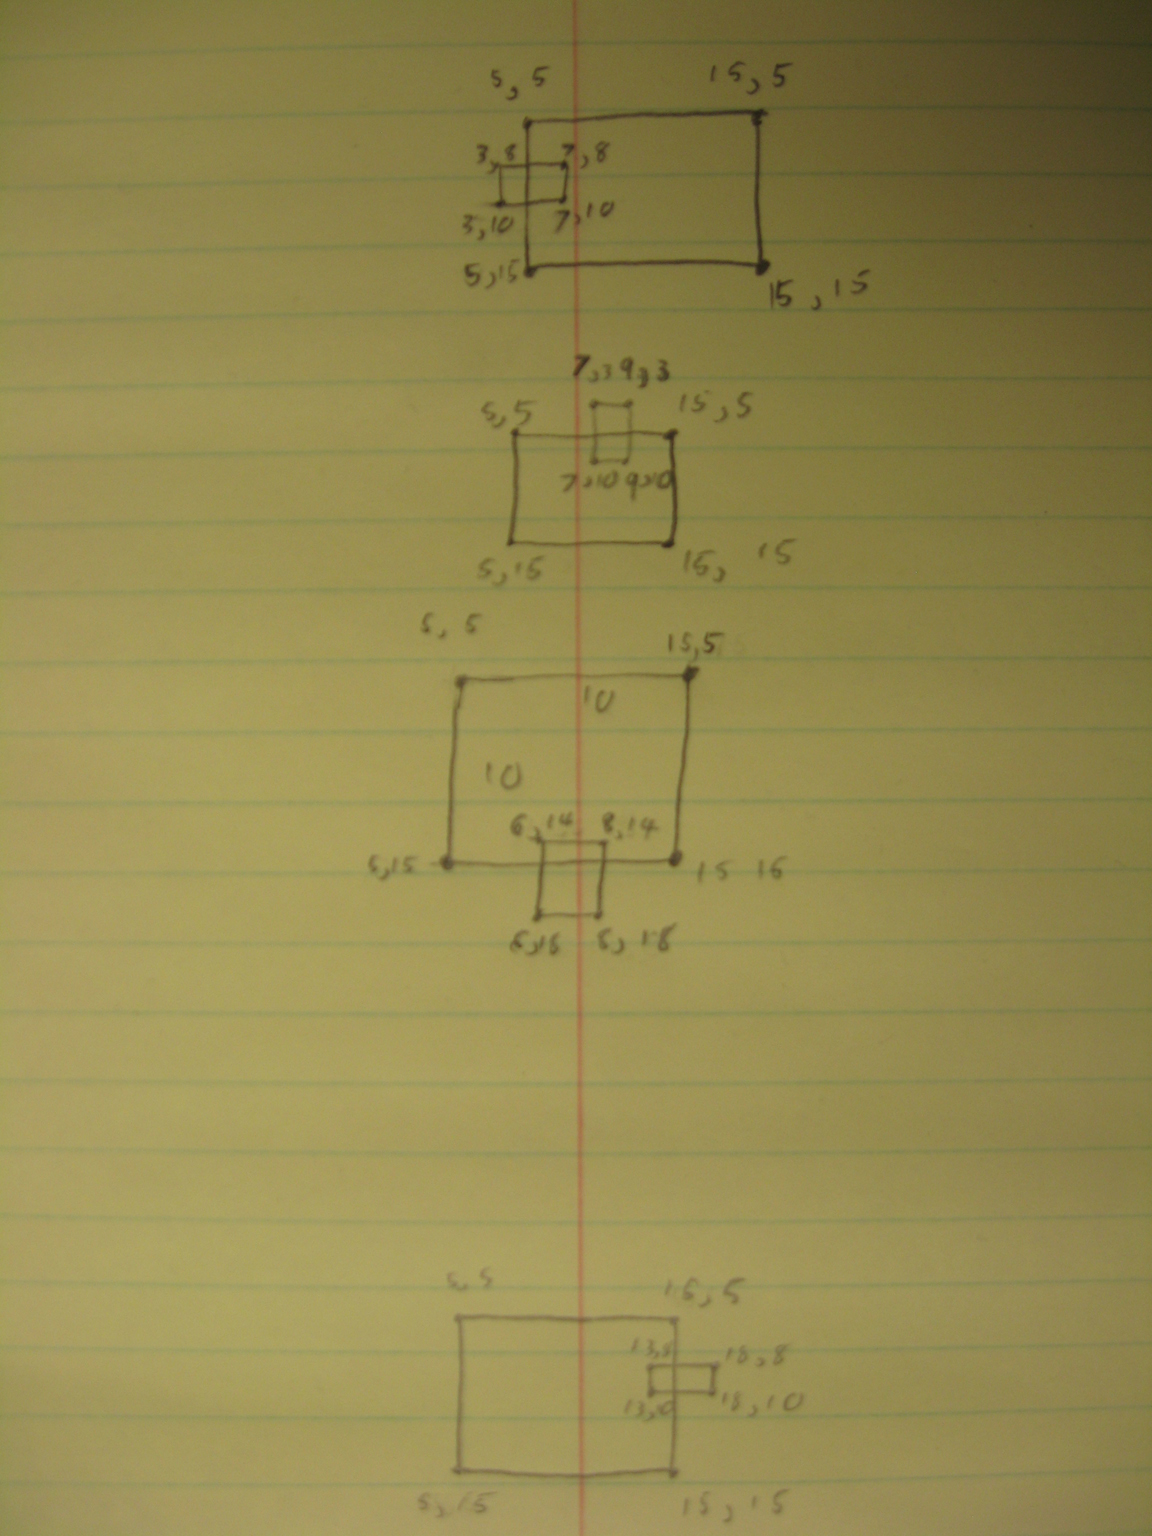 5,5 15,5
3,8 7,8
3,10 7,10
5,15 15,15
7,3 9,3
5,5 15,5
7,10 9,10
5,15 15, 15
5, 5 15,5
10
10
6,14 8,14
5,15 15 15
6,18 8, 18
5,5 15,5
13,8 18,8
13,10 18,10
5,15 15,15